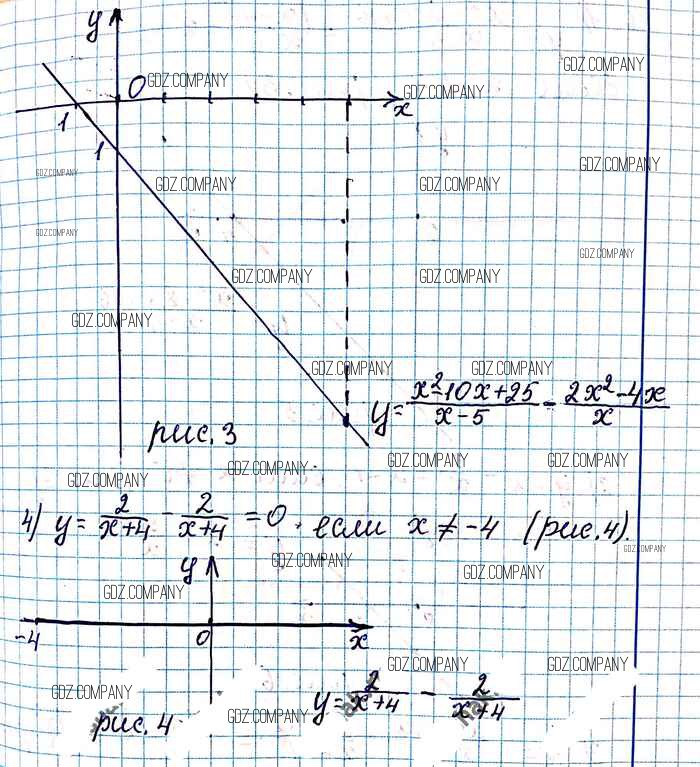 y
0 GDZ.COMPANY GDZ.COMPANY
GDZ.COMPANY
x
1
1
GDZ.COMPANY GDZ.COMPANY GDZ.COMPANY GDZ.COMPANY
GDZ.COMPANY GDZ.COMPANY
GDZ.COMPANY GDZ.COMPANY
GDZ.COMPANY
GDZ.COMPANY GDZ.COMPANY
y = (x²-10x+25)/(x-5) - (2x²-4x)/x
рис. 3
GDZ.COMPANY GDZ.COMPANY GDZ.COMPANY GDZ.COMPANY
4) y = 2/(x+4) - 2/(x+4) = 0, если x ≠ -4 (рис. 4).
GDZ.COMPANY
y GDZ.COMPANY GDZ.COMPANY
GDZ.COMPANY
-4 0 x
GDZ.COMPANY GDZ.COMPANY
GDZ.COMPANY
y = 2/(x+4) - 2/(x+4)
рис. 4 GDZ.COMPANY